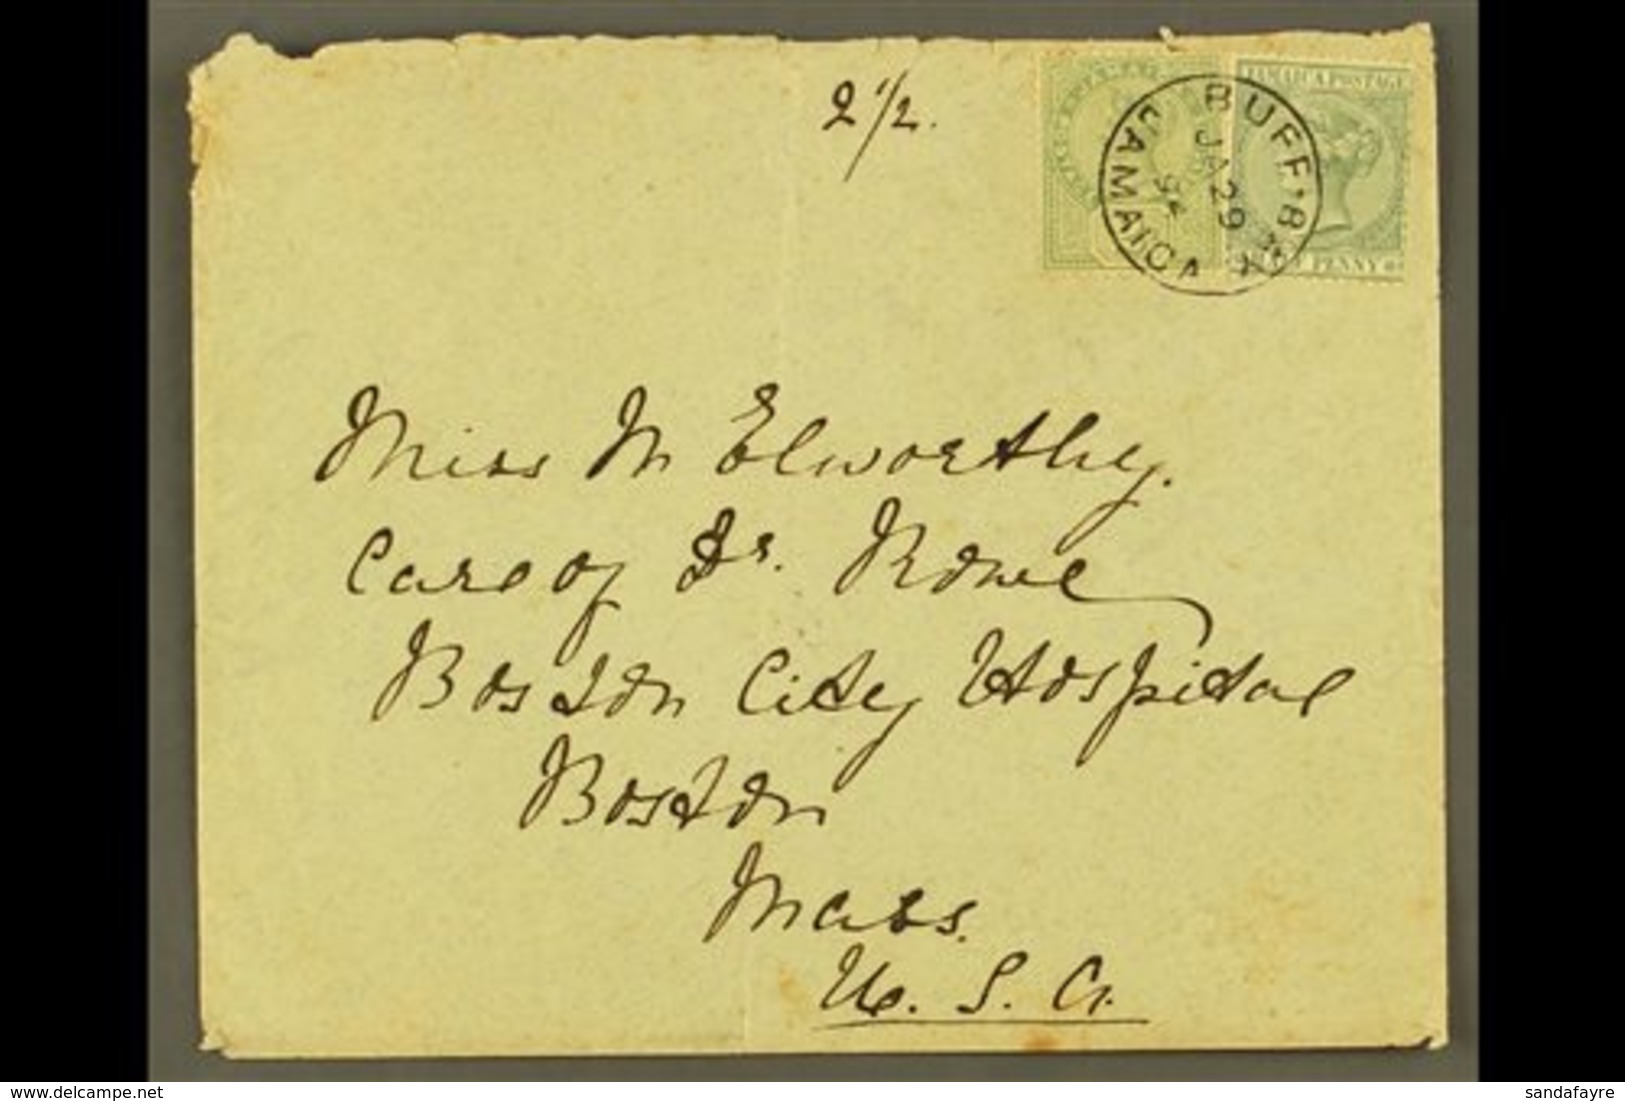 2 1/2.
JAMAICA POSTAGE
BUFF·B
JAMAICA
JA 29
94
PENNY
Miss M Elworthy.
Care of Dr. Rowe
Boston City Hospital
Boston
Mass.
U. S. A.
www.delcampe.net
sandafayre